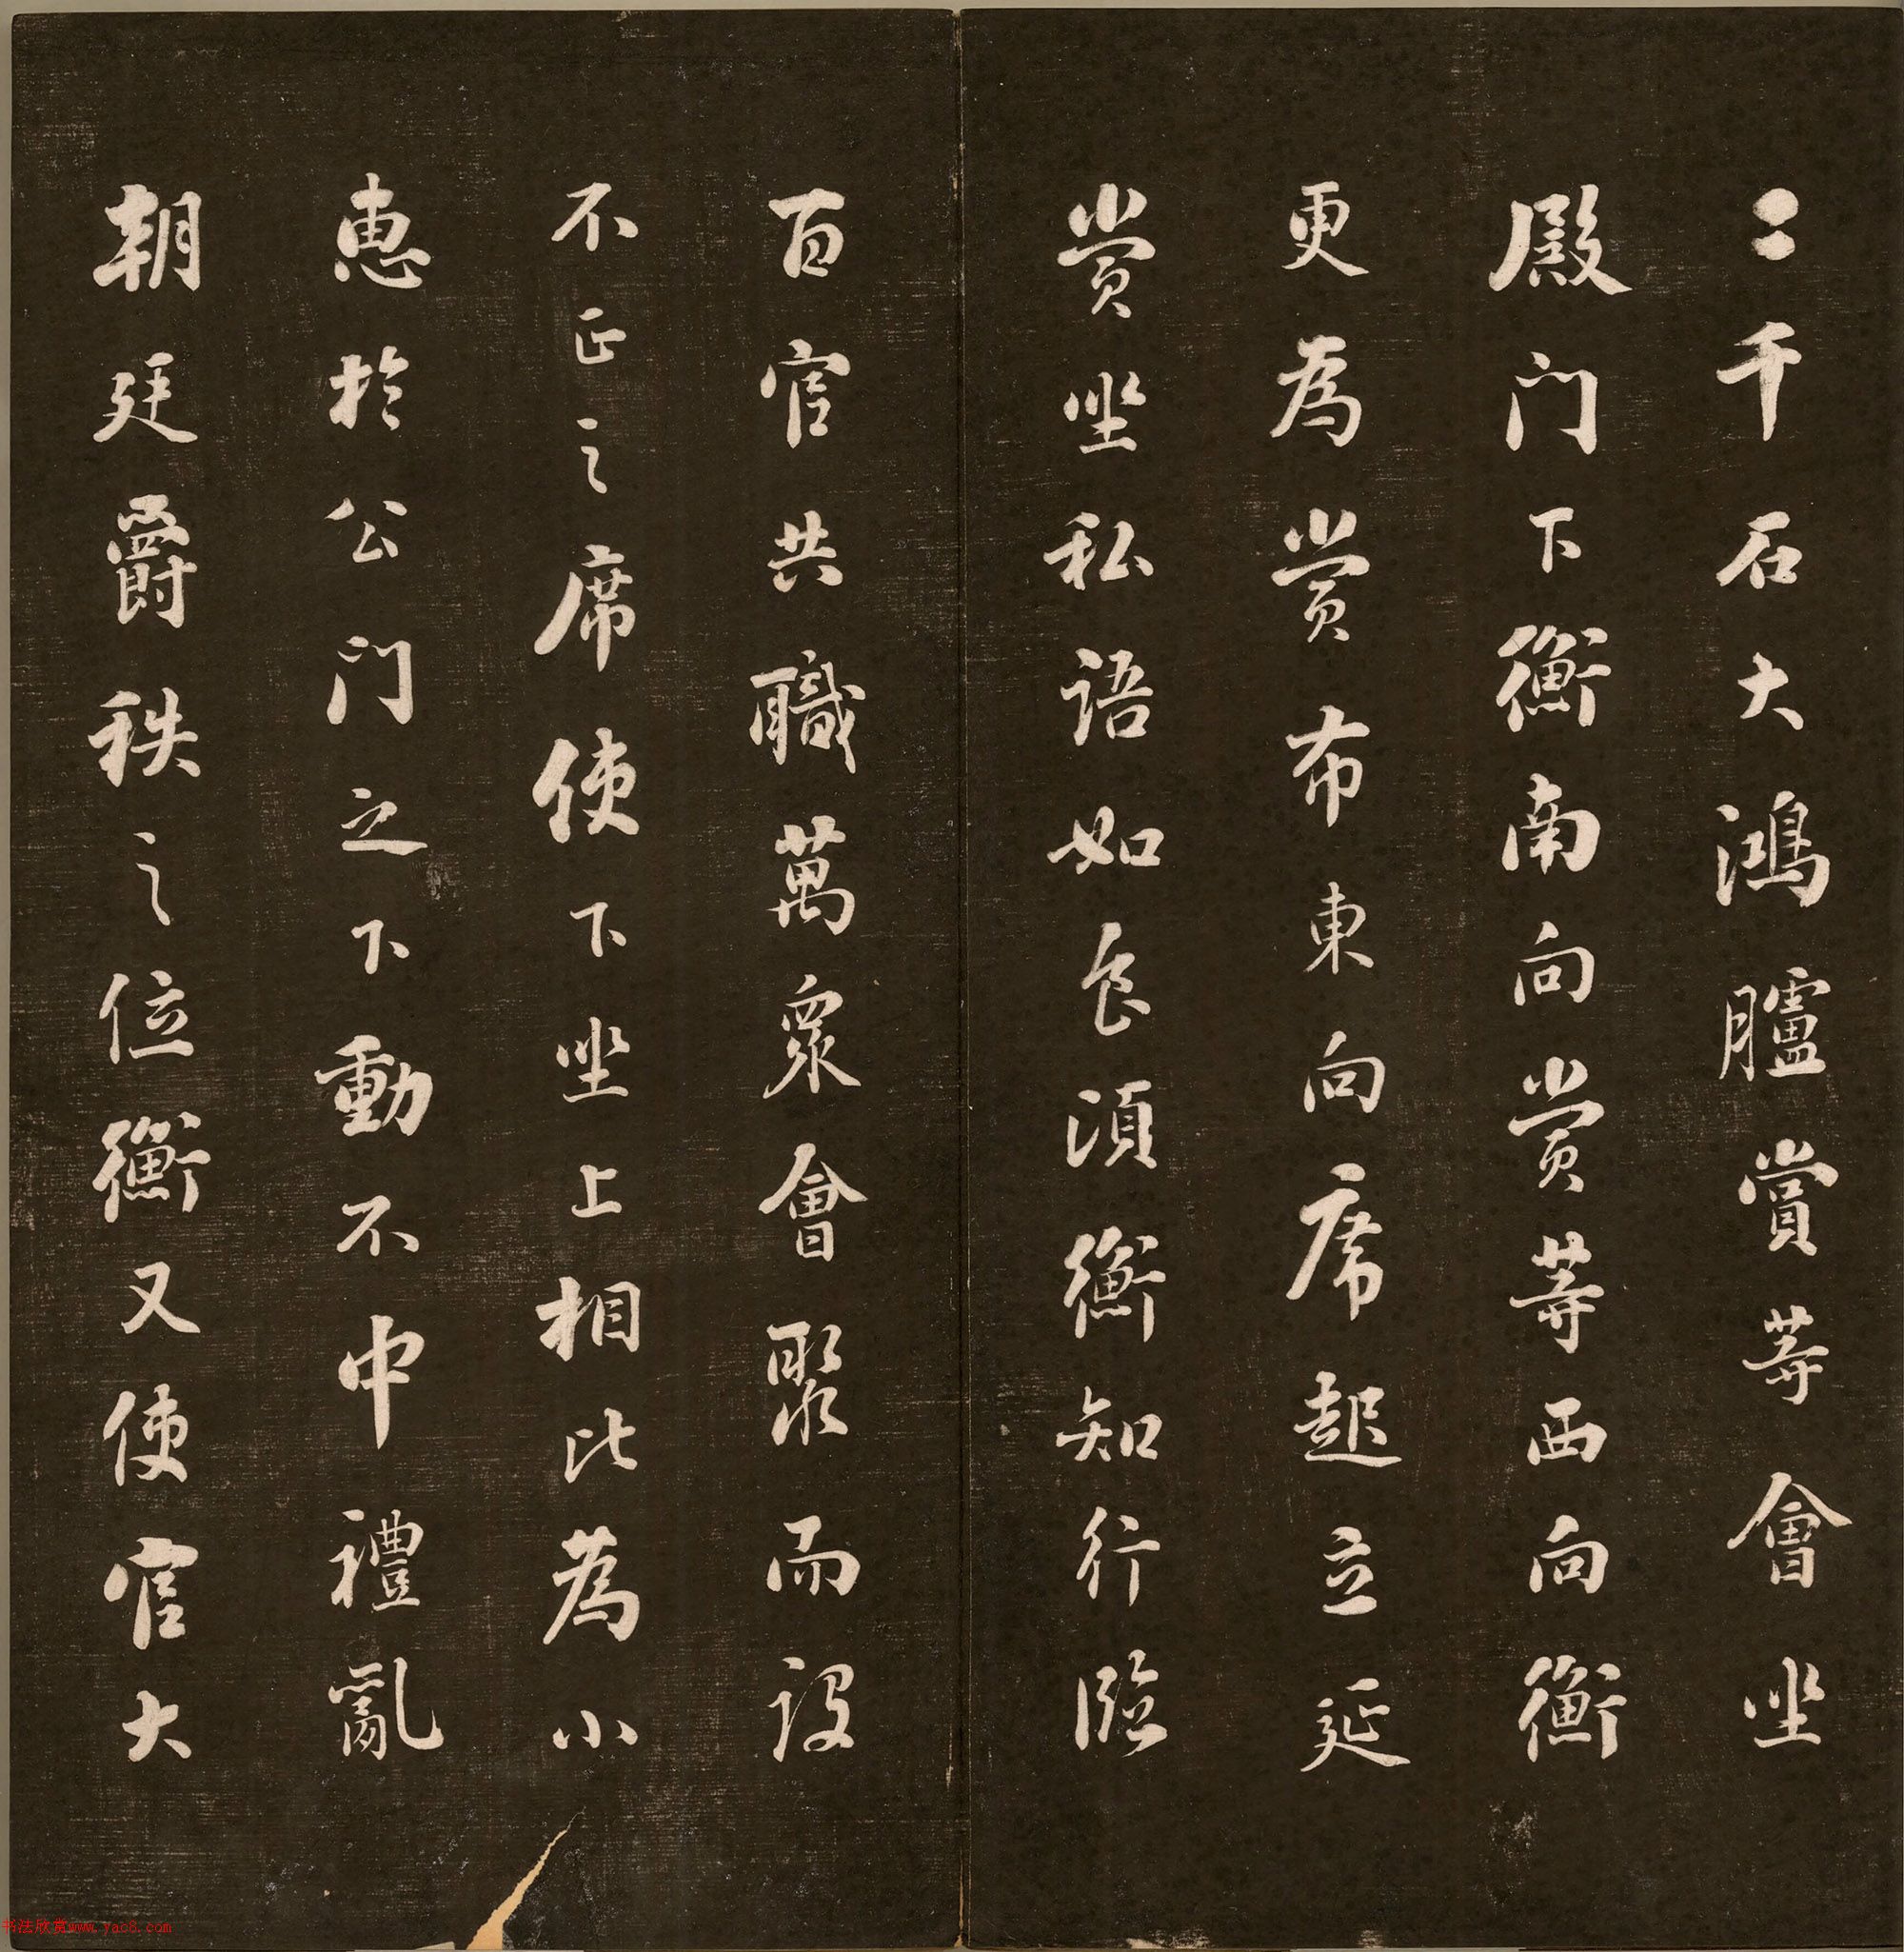 二千石大鴻臚賞等會坐
殿门下衡南向賞等西向衡
更為賞布東向席起立延
賞坐私語如食頃衡知行臨
百官共職萬衆會聚而設
不正之席使下坐上相比為小
惠於公门之下動不中禮亂
朝廷爵秩之位衡又使官大
书法欣赏www.yac8.com